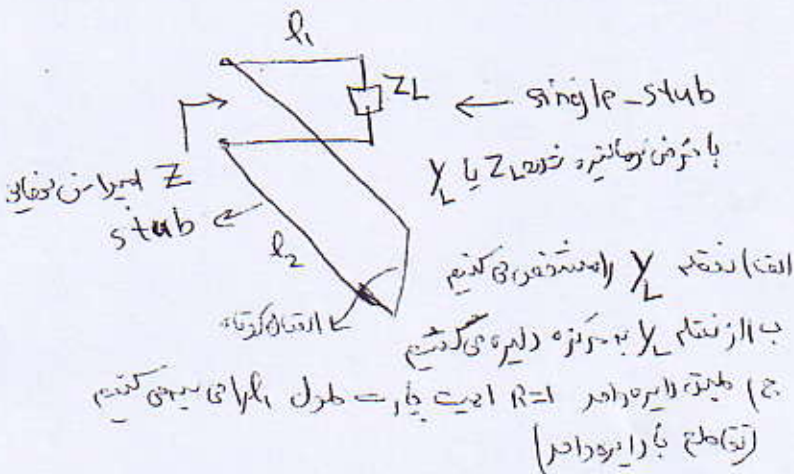 l₁
ZL
← single-stub
با فرض نرمالیزه شدن ZL یا YL
Z امپدانس نهایی
stub
l₂
اتصال کوتاه
الف) نقطه YL را مشخص می کنیم
ب) از نقطه YL به مرکز دایره می کشیم
ج) طبق دایره واحد R=1 اسمیت چارت طول l₁ را می کنیم
(تقاطع با دایره واحد)